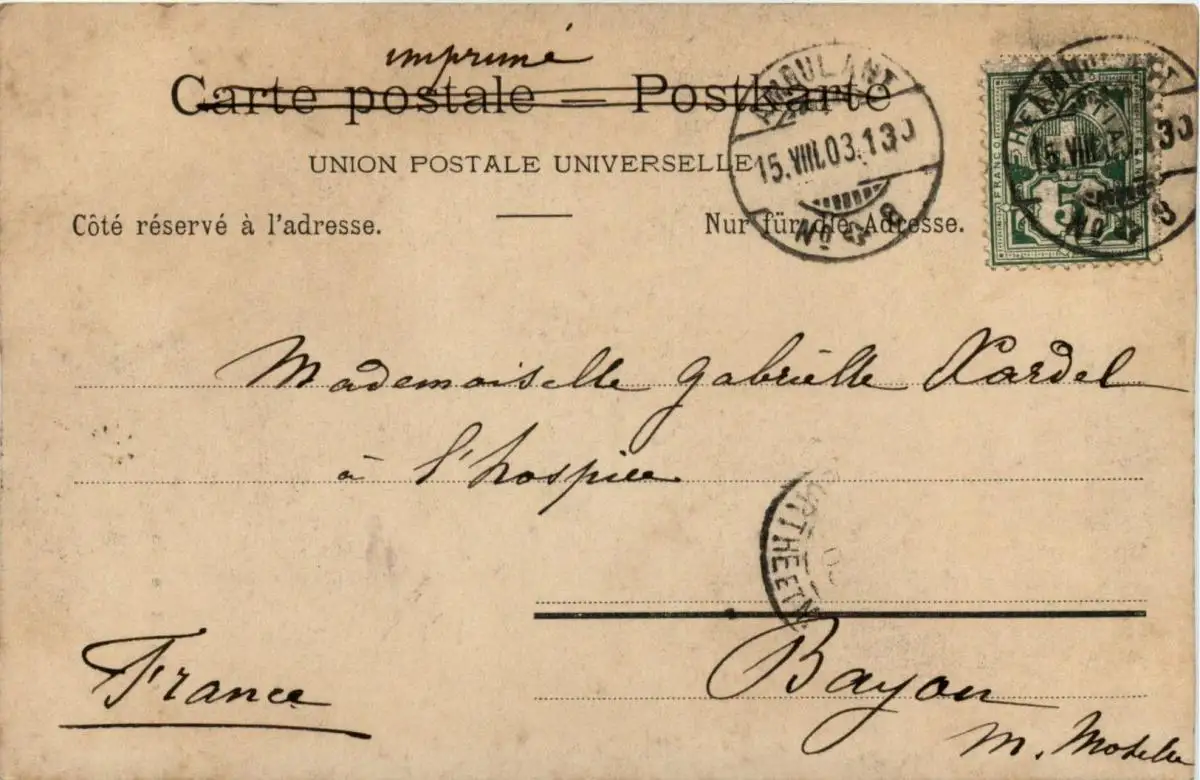 imprimé
Carte postale — Postkarte
UNION POSTALE UNIVERSELLE
Côté réservé à l'adresse.
Nur für die Adresse.
AMBULANT
15.VIII.03.13
No 8
FRANCO
5
AMBULANT
15.VIII.
No 8
Mademoiselle Gabrielle Xardel
à l'hospice
MEURTHE-ET-M
Bayon
M. Moselle
France